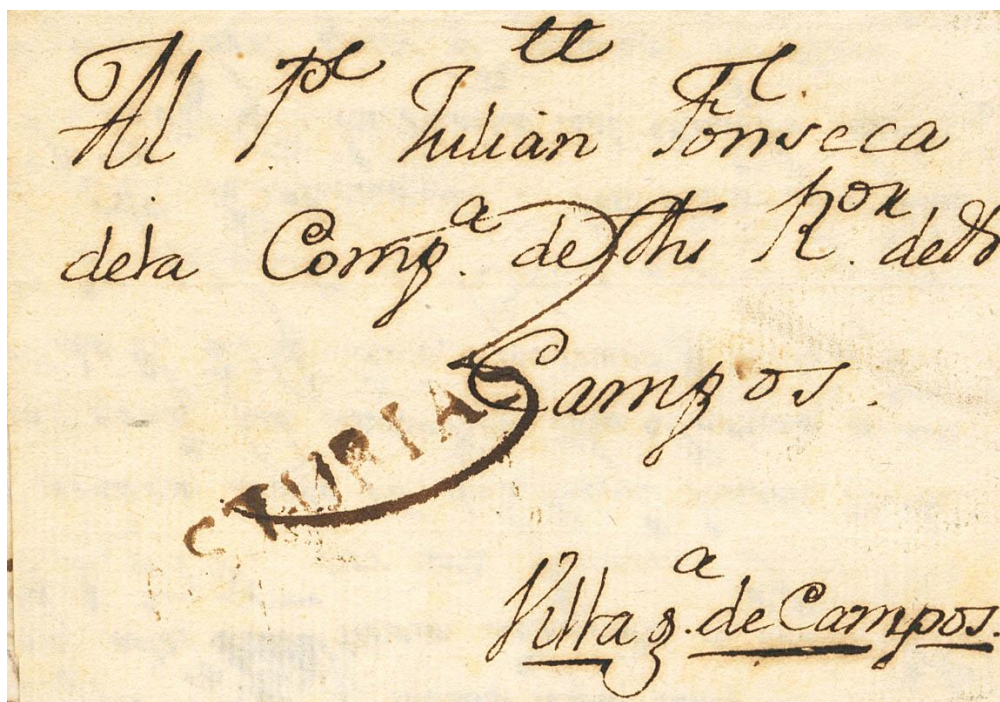 Al Pe tte Julian Fonseca
dela Comp.a de Ths R.on de
Campos.
STURIA
Villa g.a de Campos.